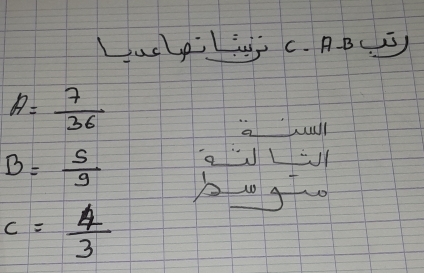 رتب C - A - B ترتيبا تصاعديا
A = 7/36
B = 5/9
C = 4/3
السنة
الثالثة
متوسط